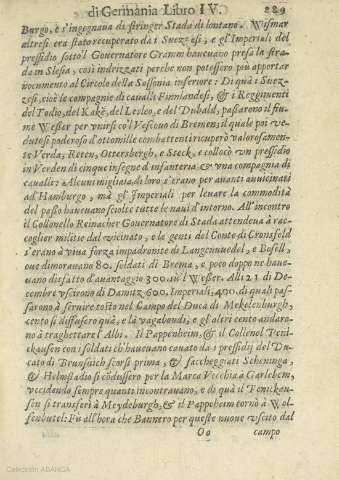 di Germania Libro IV. 289
Burgo, e s'ingegnaua di stringer Stada di lontano. Wismar
altresi era stato recuperato da i Suezzesi, e gl'Imperiali del
pressidio sotto'l Gouernatore Gramm haueuano presa la stra-
da in Slesia, così indirizzati perche non potessero più apportar
nocumento al Circolo della Sassonia inferiore: Di quà i Suez-
zesi, cioè le compagnie di caualli Finnlandesi, & i Reggimenti
del Todio, del Kakè, del Lesleo, e del Dubald, passarono il fiu-
me Wesser per vnirsi co'l Vescouo di Bremen; il quale poi ve-
dutosi poderoso d'ottomilie combattenti ricuperò valorosamen-
te Verda, Reten, Ottersbergh, e Steck, e collocò vn pressidio
in Verden di cinque insegne d'infanteria & vna compagnia di
caualli: Alcuni migliaia di loro s'erano per auanti auuicinati
ad Hamburgo, mà gl'Imperiali per leuare la commodità
del passo haueuano sciolte tutte le naui d'intorno. All'incontro
il Collonello Reinacher Gouernatore di Stada attendeua à rac-
coglier militie dal vicinato, e le genti del Conte di Cronsfeld
s'erano à viua forza impadronite di Langenuedel, e Bosell,
oue dimorauano 80. soldati di Brema, e poco doppo ne haue-
uano disfatto d'auantaggio 300. sù'l Wesser. Alli 21. di De-
cembre vscirono di Damitz 600. Imperiali, 400. di quali pas-
sarono à seruire tosto nel Campo del Duca di Mekelenburgh,
cento si diffusero quà, e là vagabondi, e gl'altri cento andaro-
no à traghettare l'Albi. Il Pappenheim, & il Collenol Penic-
ckausen con i soldati ch'haueuano cauato da i pressidij del Du-
cato di Brunsuich scorsi prima, & saccheggiati Scheninga,
& Helmstadio si cōdussero per la Marca Vecchia à Garlebem,
vccidendo sempre quanti incontrauano, e di quà il Fonickau-
sen si transferì à Meydeburgh, & il Pappeheim tornò à Wol-
fenbutel: Fù all'hora che Bannero per queste nuoue vscito dal
Oo campo
Colección ABANCA